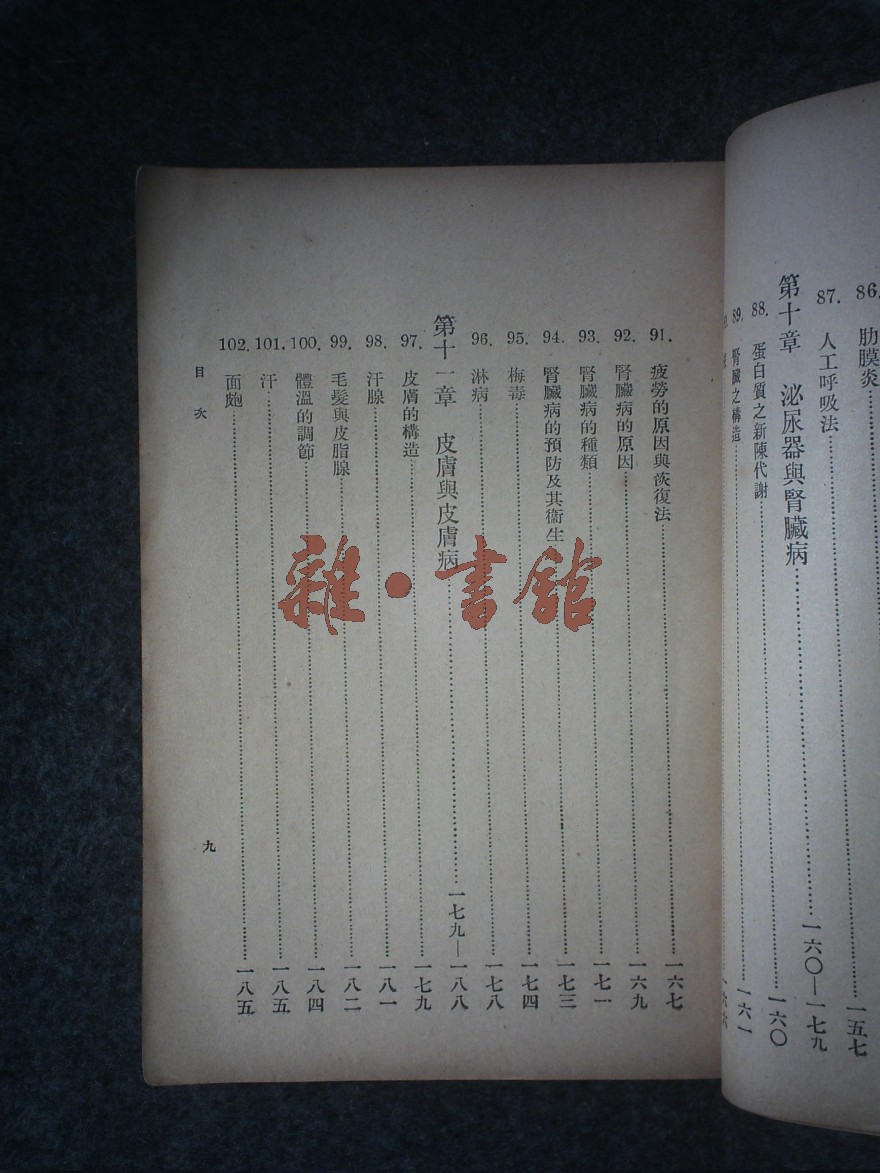 86. 肋膜炎……一五七
87. 人工呼吸法
第十章 泌尿器與腎臟病……一六〇—一七九
88. 蛋白質之新陳代謝……一六〇
89. 腎臟之構造……一六一
91. 疲勞的原因與恢復法……一六七
92. 腎臟病的原因……一六九
93. 腎臟病的種類……一七一
94. 腎臟病的預防及其衞生……一七三
95. 梅毒……一七四
96. 淋病……一七八
第十一章 皮膚與皮膚病……一七九—一八八
97. 皮膚的構造……一七九
98. 汗腺……一八一
99. 毛髮與皮脂腺……一八二
100. 體溫的調節……一八四
101. 汗……一八五
102. 面皰……一八五
目次
九
雜·書館